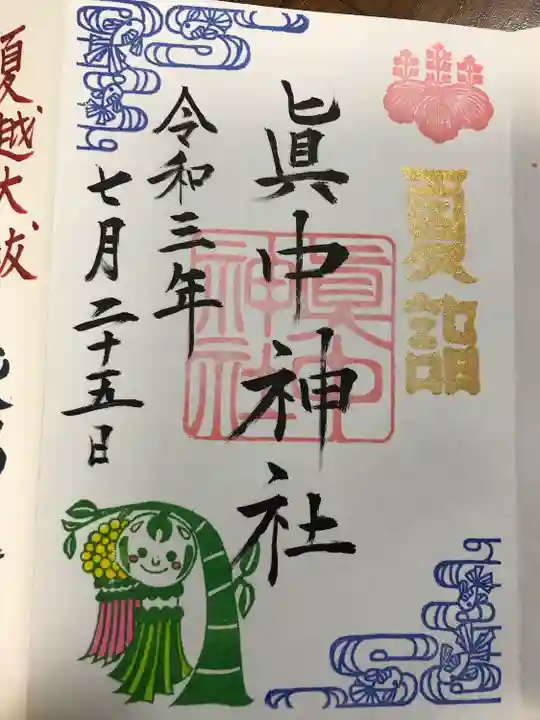 夏詣
眞中神社
眞中
神社
令和三年
七月二十五日
夏越大祓